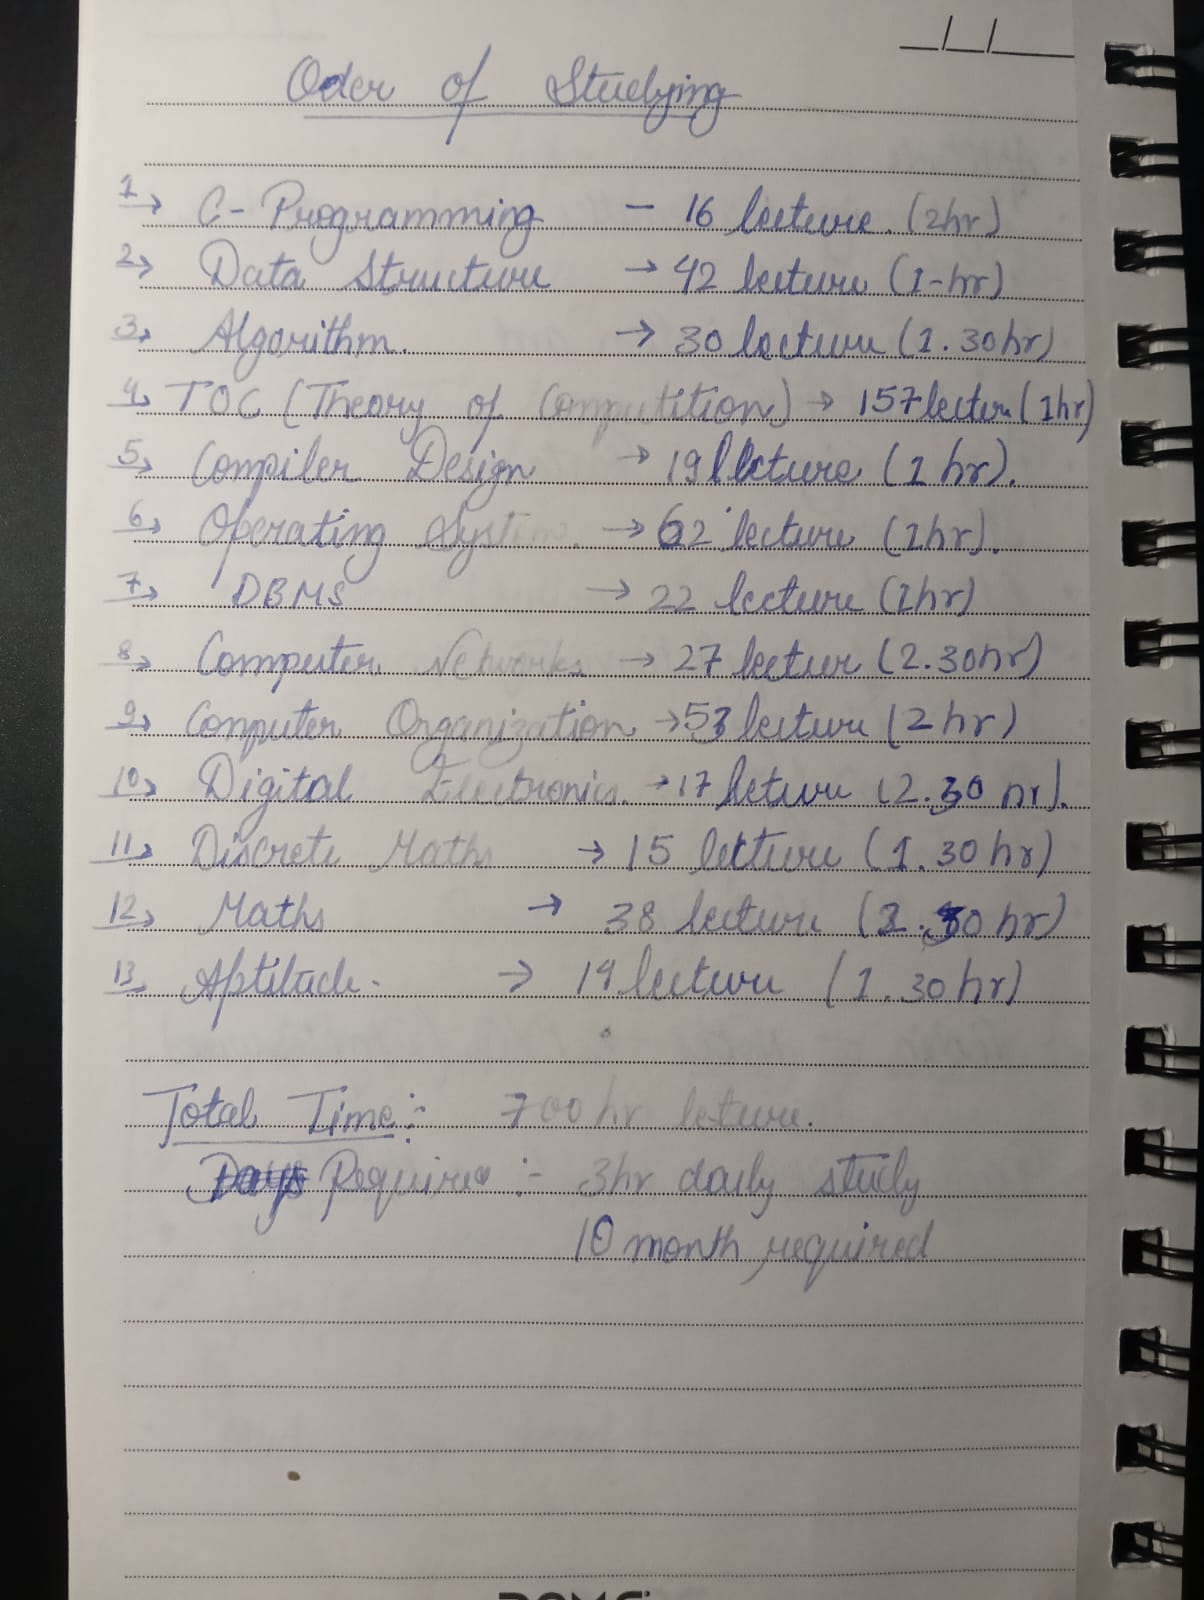 _/_/_
Oder of Studying
1→ C-Programming - 16 lecture. (2hr)
2→ Data Structure → 42 lecture (1-hr)
3→ Algorithm. → 30 lecture (1.30hr)
4→ TOC (Theory of Computition) → 157 lecture (1hr)
5→ Compiler Design → 19 lecture (1 hr).
6→ Operating System. → 62 lecture (1hr).
7→ DBMS → 22 lecture (1hr)
8→ Computer Networks → 27 lectur (2.30hr)
9→ Computer Organization → 53 lecture (2 hr)
10→ Digital Electronics. → 17 lecture (2.30 hr).
11→ Discrete Maths → 15 lecture (1.30 hr)
12→ Maths → 38 lecture (30 hr)
13→ Aptitude. → 19 lecture (1.30 hr)
Total Time:- 700 hr lecture.
Days Require :- 3hr daily study
10 month required